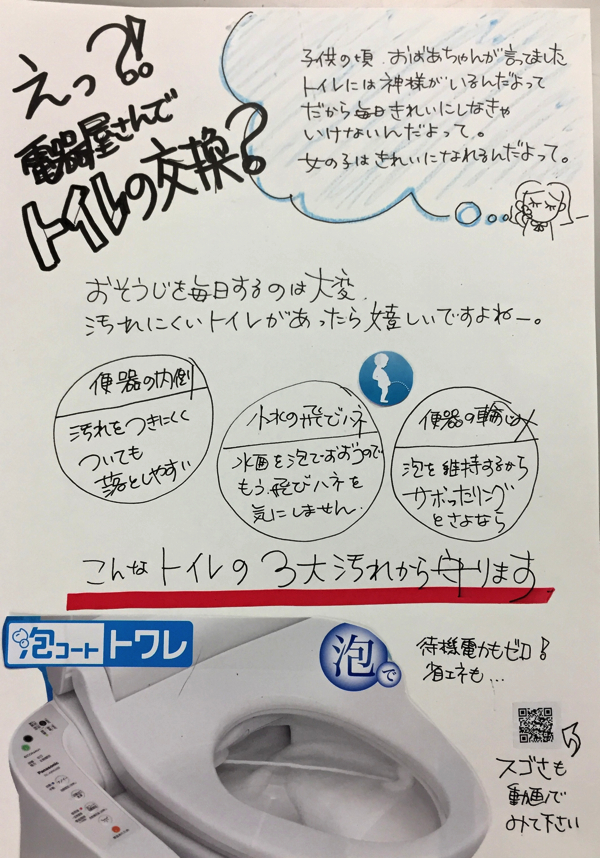 えっ?!
電器屋さんで
トイレの交換?
子供の頃、おばあちゃんが言ってました
トイレには神様がいるんだよって
だから毎日きれいにしなきゃ
いけないんだよって。
女の子はきれいになれるんだよって。
おそうじを毎日するのは大変
汚れにくいトイレがあったら嬉しいですよねー。
便器の内側
汚れをつきにくく
ついても
落としやすい
小水の飛びハネ
水面を泡でおおうので
もう飛びハネを
気にしません。
便器の輪じみ
泡を維持するから
サボったリング
とさよなら
こんなトイレの3大汚れから守ります
泡コートトワレ
泡で
待機電力もゼロ!
省エネも…
Panasonic
スゴさも
動画で
みて下さい